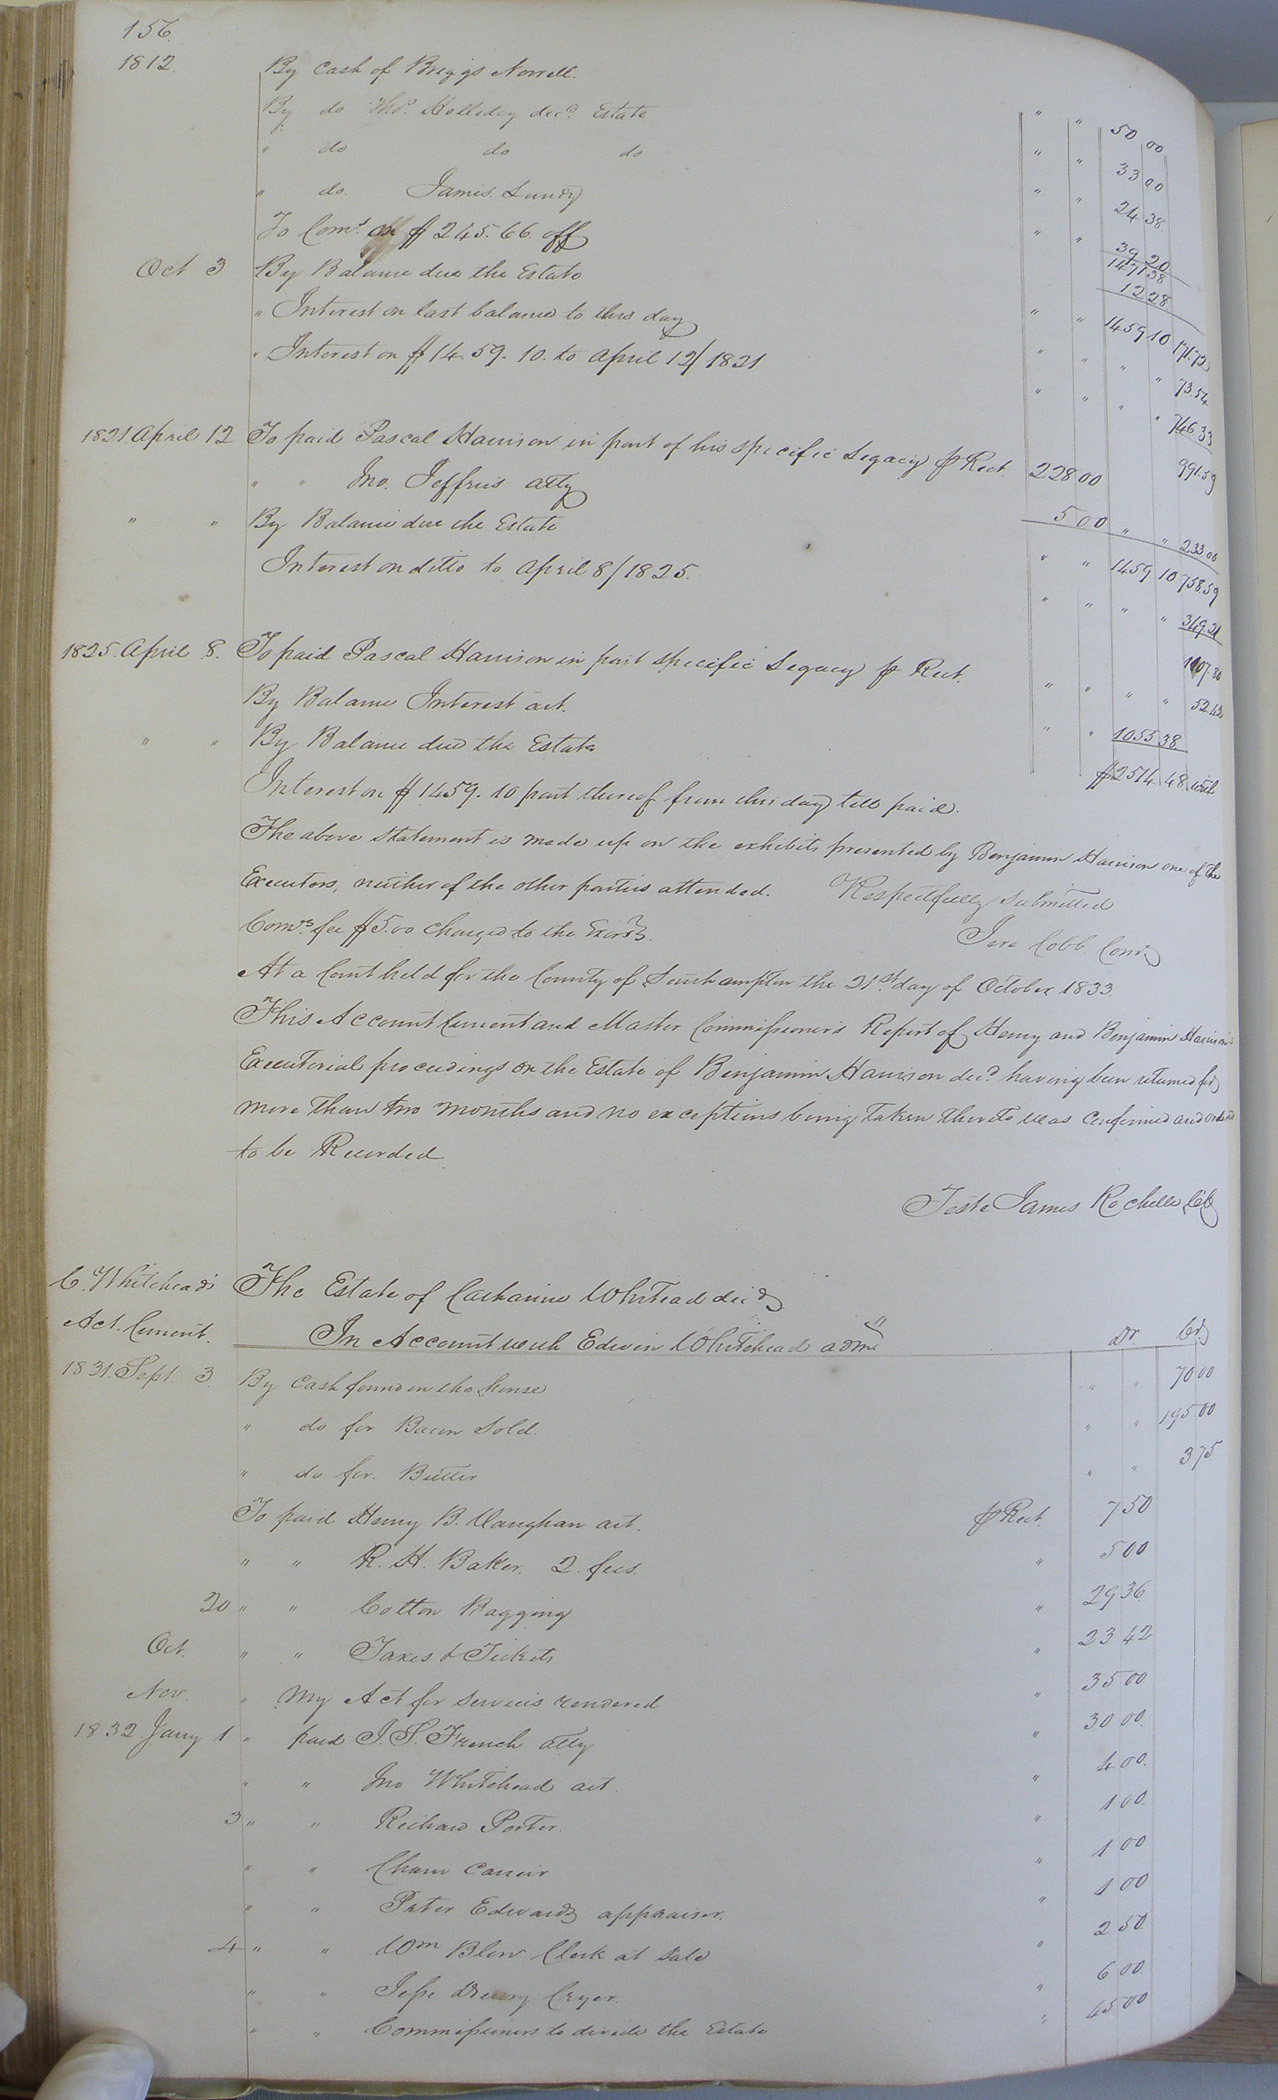 156.
1812. By Cash of Briggs Norvell. " " 50 00
By do Thos. Holleday decd. Estate " " 33 00
" do do do " " 24 38
" do. James Lundy " " 39 20
1471 38
To Coms. on $245.66 off 12 28
Oct 3 By Balance due the Estate " " 1459 10 171.72
" Interest on last balance to this day " " " " 73.54
" Interest on $14.59.10. to April 12/1821 " " " " 746 33
991.59
1821 April 12 To paid Pascal Harrison in part of his specific Legacy p Rect 228 00
" " Jno. Jeffries atty 5 00 " " 233 00
" " By Balance due the Estate " " 1459 10 758.59
Interest on ditto to April 8/1825. " " " " 349 21
1107 80
1825. April 8. To paid Pascal Harrison in part specific Legacy p Rect. " " " " 52.42
By Balance Interest act. " " 1055 38
" " By Balance due the Estate $2514.48 with
Interest on $1459.10 part thereof from this day till paid.
The above statement is made up on the exhibits presented by Benjamin Harrison one of the
Executors, neither of the other parties attended. Respectfully submitted
Comrs. fee $5.00 charged to the Exors. Jere Cobb Comr.
At a Court held for the County of Southampton the 21st. day of October 1833.
This Account Current and Master Commissioner's Report of Henry and Benjamin Harrison's
Executorial proceedings on the Estate of Benjamin Harrison decd. having been returned for
more than two months and no exceptions being taken thereto was confirmed and ordered
to be Recorded
Teste James Rochelle Clk
C. Whitehead's The Estate of Catharine Whitead decd
Act. Current. In Account with Edwin Whitehead admr Dr Cr.
1831. Sept. 3. By Cash found in the house " " 70 00
" do for Bacon Sold. " " 195 00
" do for. Butter " " 3 75
To paid Henry B. Vaughan act. p Rect. 7 50
" " R. H. Baker. 2 fees. " 5 00
20 " " Cotton Bagging " 29 36
Oct. " " Taxes & Tickets " 23 42
Nov. " My Act for services rendered " 35 00
1832 Jany 1 " paid J. S. French atty " 30 00.
" " Jno Whitehead act. " 4 00.
3 " " Richard Porter. " 1 00.
" " Cham " 1 00
" " Peter Edwards appraiser. " 1 00
4 " " Wm Blow Clerk at sale " 2 50.
" " Jesse Drewry Cryer. " 6 00
" " Commissioners to divide the Estate " 45 00